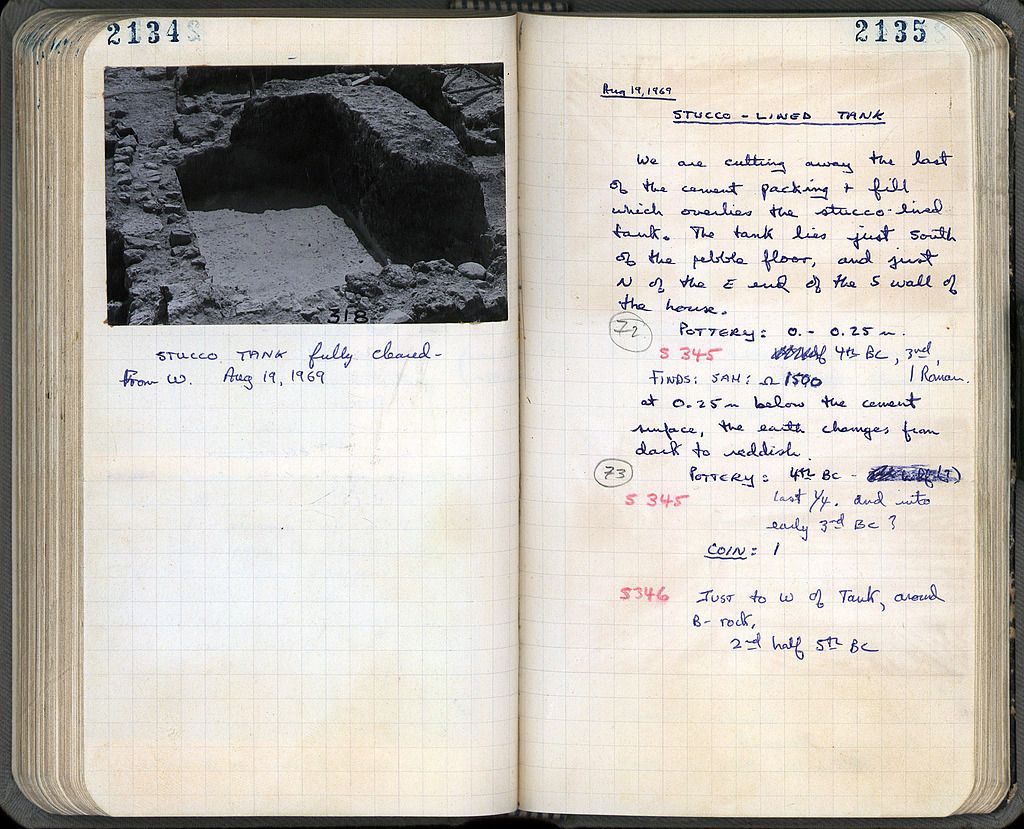 2134
318
STUCCO TANK fully cleared -
From W. Aug 19, 1969
2135
Aug 19, 1969
STUCCO - LINED TANK
We are cutting away the last
of the cement packing + fill
which overlies the stucco-lined
tank. The tank lies just South
of the pebble floor, and just
N of the E end of the S wall of
the house.
72
POTTERY: 0. - 0.25 m.
S 345 4th BC, 3rd,
1 Roman.
FINDS: JAH: Ω 1500
at 0.25 m below the cement
surface, the earth changes from
dark to reddish.
73
POTTERY: 4th BC -
S 345 last 1/4. and into
early 3rd BC ?
COIN: 1
S346 JUST to W of Tank, around
B-rock,
2nd half 5th BC